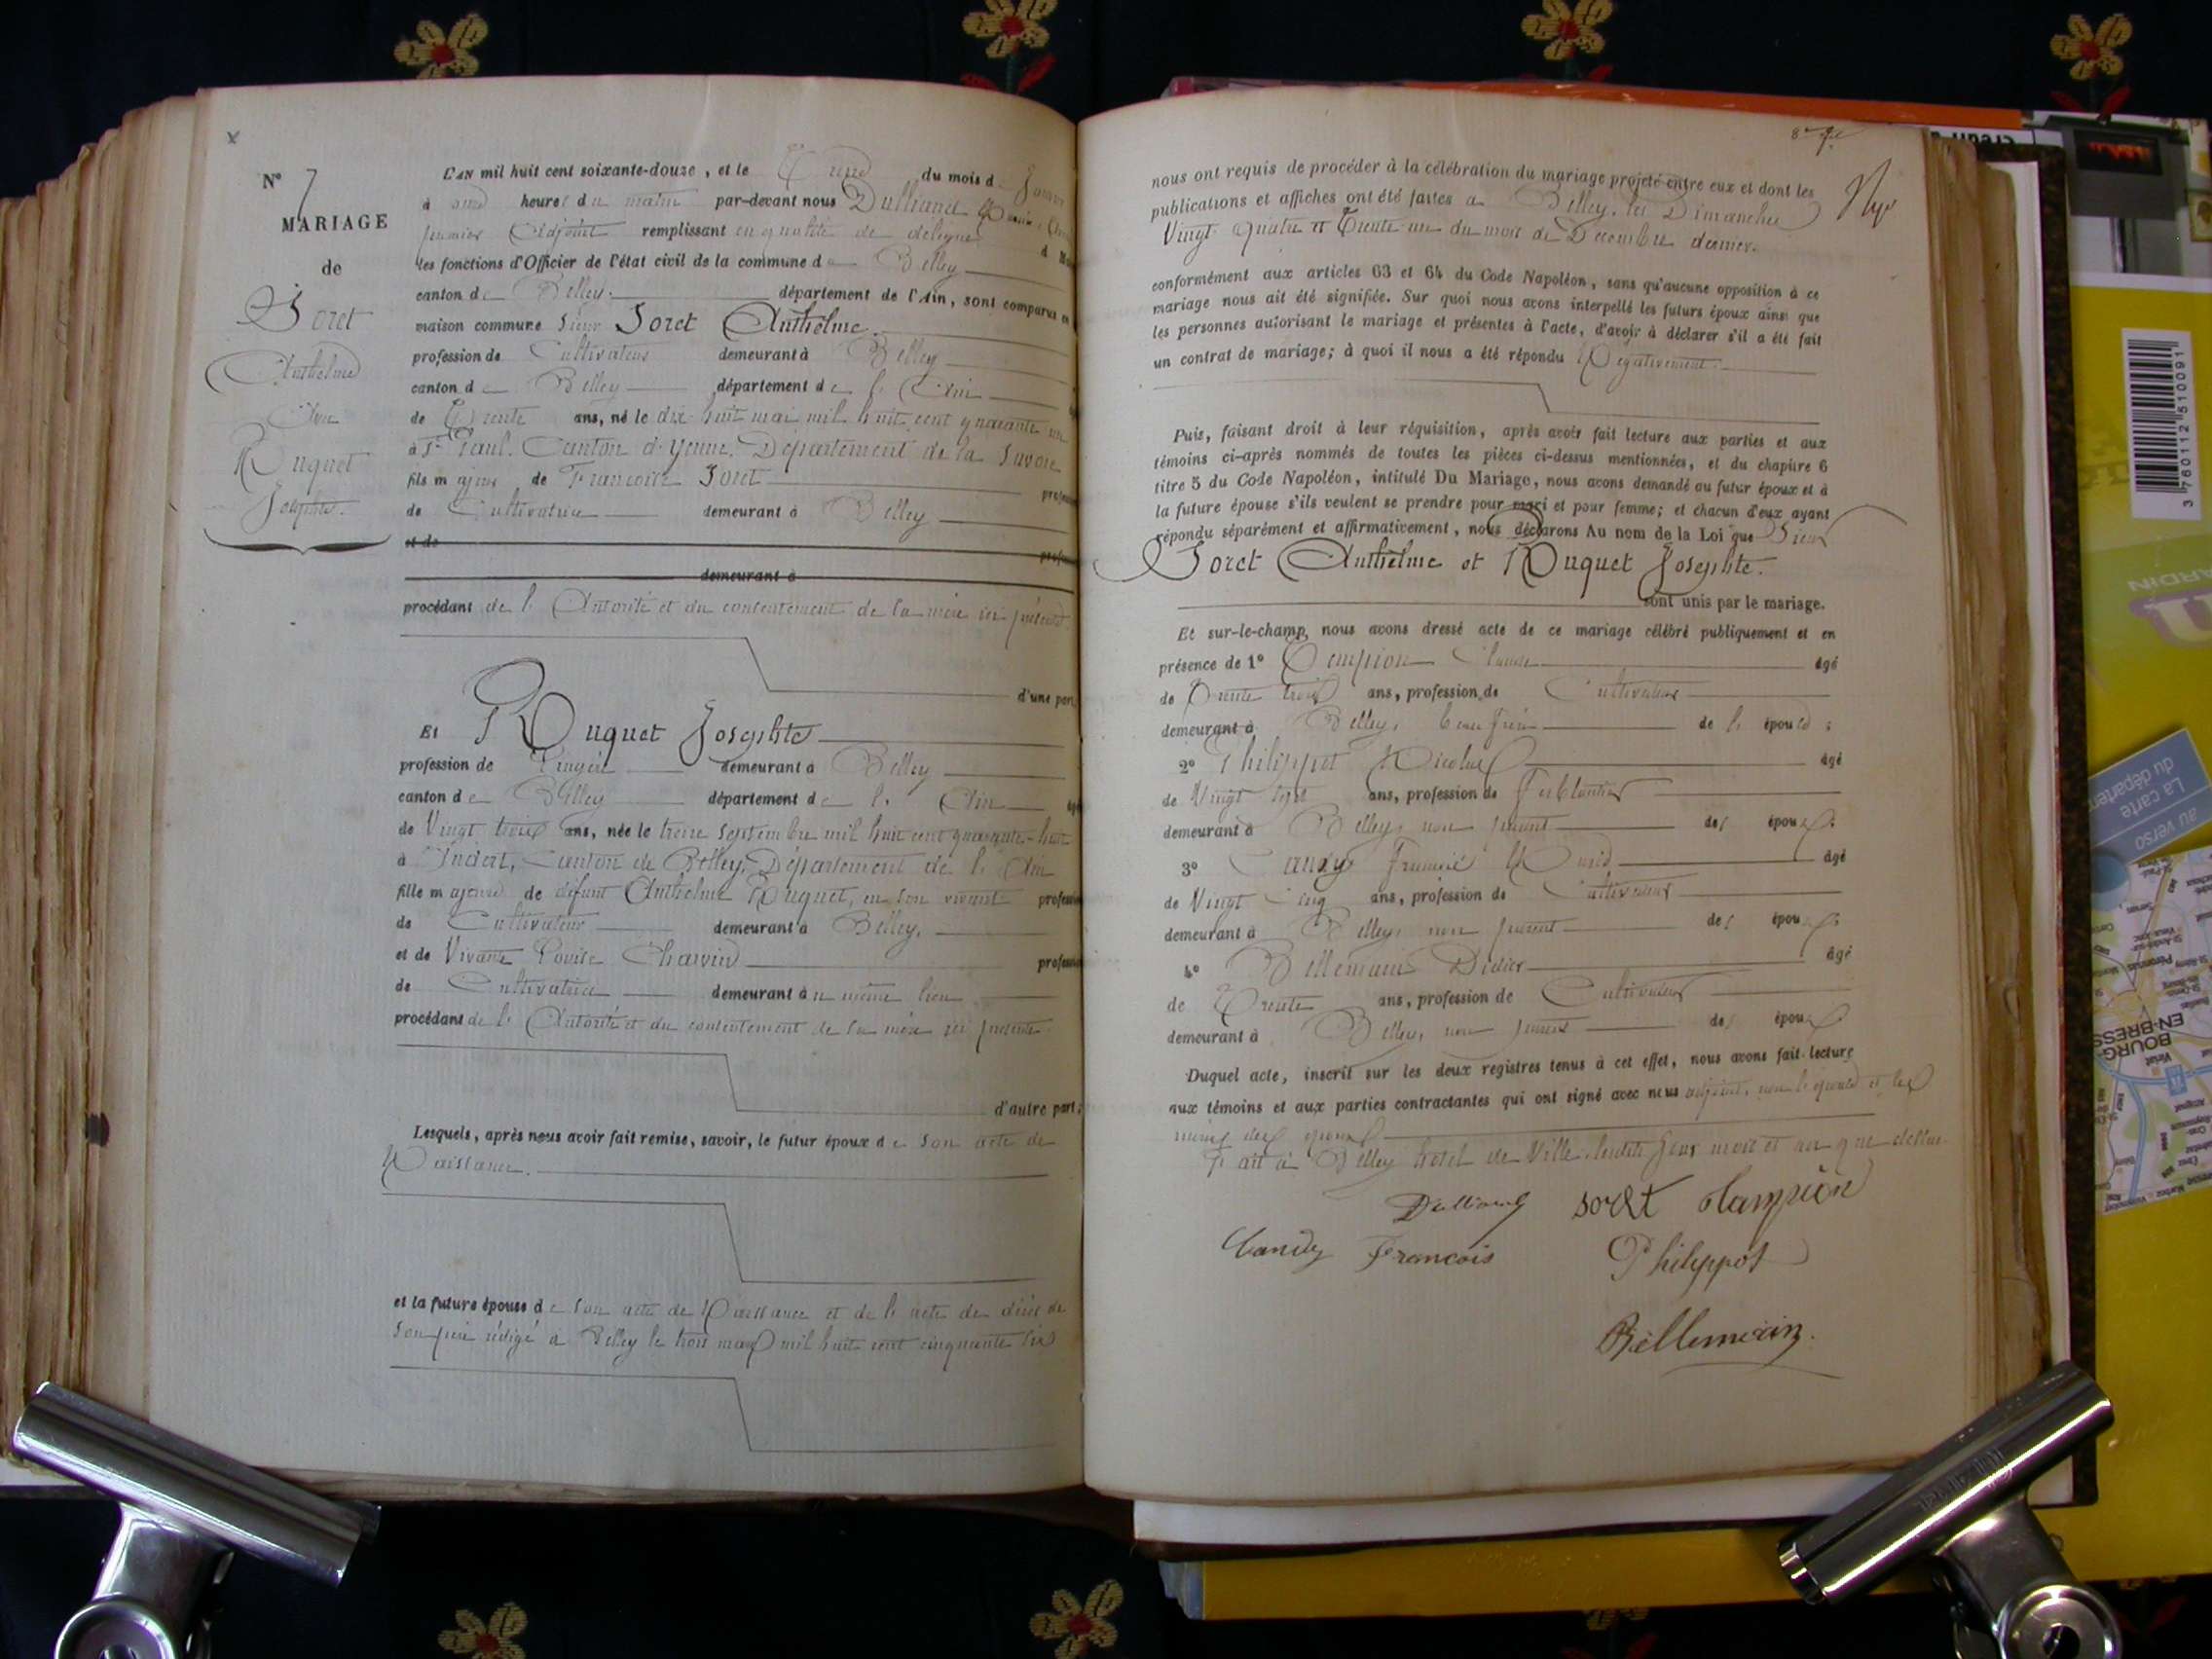 N° 7
MARIAGE
de
Soret
Anthelme
Avec
Ruquet
Josephte.
L'AN mil huit cent soixante-douze, et le onze du mois de Janvier
à onze heures du matin par-devant nous Dulliand
premier Adjoint remplissant en qualité de délégué
les fonctions d'Officier de l'état civil de la commune de Belley
canton de Belley. département de l'Ain, sont comparus en
maison commune Sieur Soret Anthelme.
profession de Cultivateur demeurant à Belley
canton de Belley département de l'Ain
de Trente ans, né le dix-huit mai mil huit cent quarante un
à St Paul. Canton d'Yenne. Département de la Savoie
fils majeur de Françoise Soret
de Cultivatrice demeurant à Belley
et de
demeurant à
procédant de l'Autorité et du consentement de sa mère ici présente.
d'une part;
Et Ruquet Josephte
profession de Lingère demeurant à Belley
canton de Belley département de l'Ain
de Vingt trois ans, née le treize Septembre mil huit cent quarante-huit
à Andert, Canton de Belley, Département de l'Ain
fille majeure de défunt Anthelme Ruquet, en son vivant profession
de Cultivateur demeurant à Belley,
et de Vivante Louise Charvin profession
de Cultivatrice demeurant au même lieu
procédant de l'Autorité et du consentement de sa mère ici présente.
d'autre part;
Lesquels, après nous avoir fait remise, savoir, le futur époux de son acte de
Naissance.
et la future épouse de son acte de Naissance et de l'acte de décès de
son père rédigé à Belley le trois mars mil huit cent cinquante six
nous ont requis de procéder à la célébration du mariage projeté entre eux et dont les
publications et affiches ont été faites à Belley. les Dimanches
Vingt-quatre et Trente-un du mois de Décembre dernier.
conformément aux articles 63 et 64 du Code Napoléon, sans qu'aucune opposition à ce
mariage nous ait été signifiée. Sur quoi nous avons interpellé les futurs époux ainsi que
les personnes autorisant le mariage et présentes à l'acte, d'avoir à déclarer s'il a été fait
un contrat de mariage; à quoi il nous a été répondu Négativement.
Puis, faisant droit à leur réquisition, après avoir fait lecture aux parties et aux
témoins ci-après nommés de toutes les pièces ci-dessus mentionnées, et du chapitre 6
titre 5 du Code Napoléon, intitulé Du Mariage, nous avons demandé au futur époux et à
la future épouse s'ils veulent se prendre pour mari et pour femme; et chacun d'eux ayant
répondu séparément et affirmativement, nous déclarons Au nom de la Loi que Sieur
Soret Anthelme et Ruquet Josephte.
sont unis par le mariage.
Et sur-le-champ, nous avons dressé acte de ce mariage célébré publiquement et en
présence de 1° Campion Claude âgé
de Trente trois ans, profession de Cultivateur
demeurant à Belley, beau frère de l'épouse;
2° Philippot Nicolas âgé
de Vingt sept ans, profession de Ferblantier
demeurant à Belley, non parent des époux;
3° Candy François âgé
de Vingt Cinq ans, profession de Cultivateur
demeurant à Belley, non parent des époux;
4° Bellemain Didier âgé
de Trente ans, profession de Cultivateur
demeurant à Belley, non parent des époux
Duquel acte, inscrit sur les deux registres tenus à cet effet, nous avons fait lecture
aux témoins et aux parties contractantes qui ont signé avec nous adjoint, non l'épouse et les
mères des époux
Fait à Belley hotel de Ville lesdits Jour mois et an que dessus
Dulliand Soret Campion
Candy François Philippot
Bellemain
3 760112 510091
au verso
La carte
du départem
BOURG-
EN-BRESS